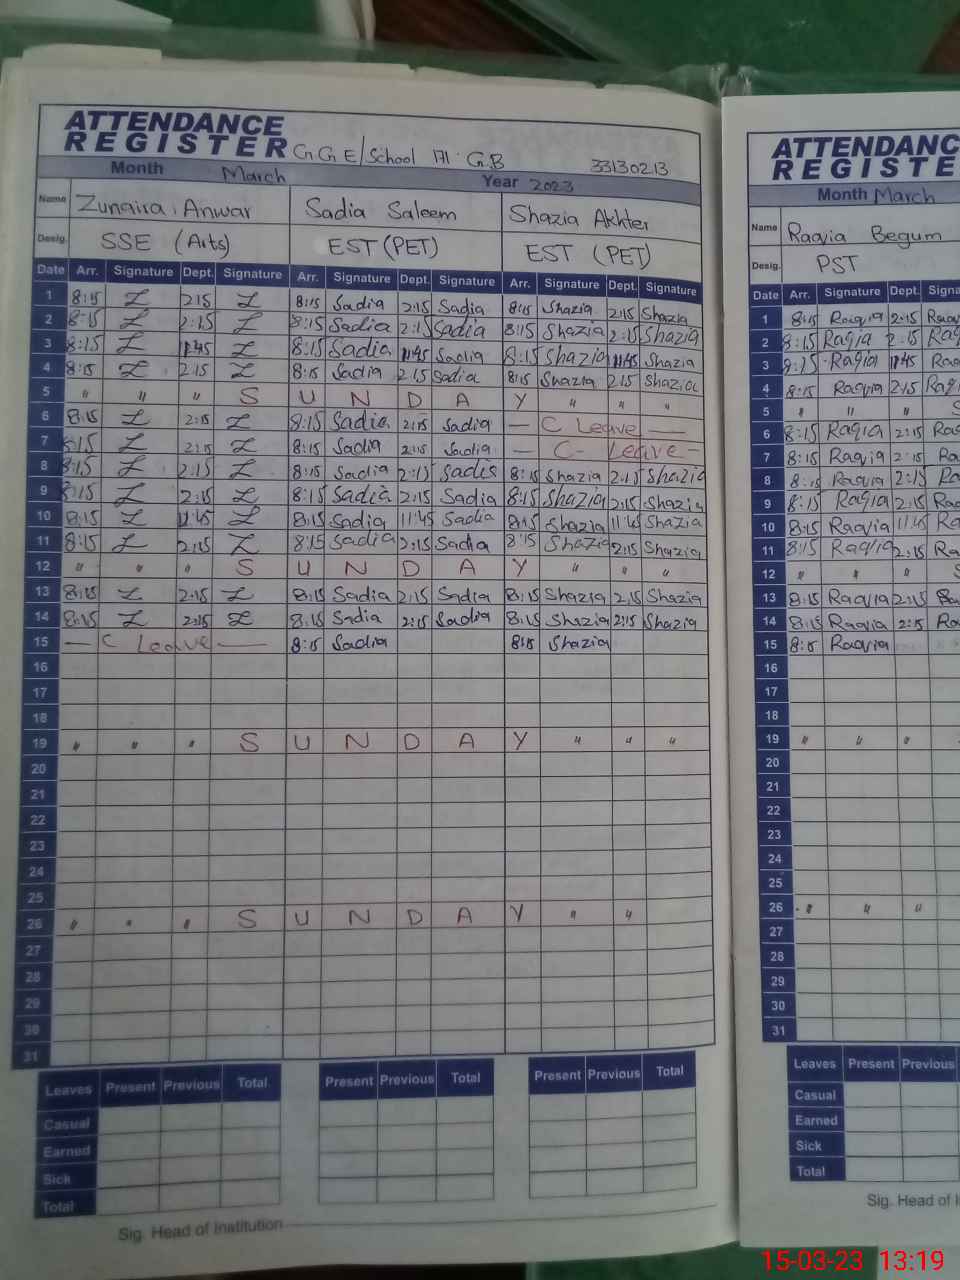 ATTENDANCE
REGISTER G G E/School 71 G.B 33130213
Month March Year 2023
Name Zunaira Anwar Sadia Saleem Shazia Akhter
Desig. SSE (Arts) EST (PET) EST (PET)
Date Arr. Signature Dept. Signature Arr. Signature Dept. Signature Arr. Signature Dept. Signature
1 8:15 2:15 8:15 Sadia 2:15 Sadia 8:15 Shazia 2:15 Shazia
2 8:15 2:15 8:15 Sadia 2:15 Sadia 8:15 Shazia 2:15 Shazia
3 8:15 11:45 8:15 Sadia 11:45 Sadia 8:15 Shazia 11:45 Shazia
4 8:15 2:15 8:15 Sadia 2:15 Sadia 8:15 Shazia 2:15 Shazia
5 " " " S U N D A Y " " "
6 8:15 2:15 8:15 Sadia 2:15 Sadia — C Leave —
7 8:15 2:15 8:15 Sadia 2:15 Sadia — C - Leave -
8 8:15 2:15 8:15 Sadia 2:15 Sadia 8:15 Shazia 2:15 Shazia
9 8:15 2:15 8:15 Sadia 2:15 Sadia 8:15 Shazia 2:15 Shazia
10 8:15 11:45 8:15 Sadia 11:45 Sadia 8:15 Shazia 11:45 Shazia
11 8:15 2:15 8:15 Sadia 2:15 Sadia 8:15 Shazia 2:15 Shazia
12 " " " S U N D A Y " " "
13 8:15 2:15 8:15 Sadia 2:15 Sadia 8:15 Shazia 2:15 Shazia
14 8:15 2:15 8:15 Sadia 2:15 Sadia 8:15 Shazia 2:15 Shazia
15 — C Leave — 8:15 Sadia 8:15 Shazia
16
17
18
19 " " " S U N D A Y " " "
20
21
22
23
24
25
26 " " " S U N D A Y " "
27
28
29
30
31
Leaves Present Previous Total Present Previous Total Present Previous Total
Casual
Earned
Sick
Total
Sig. Head of Institution
ATTENDANC
REGISTE
Month March
Name Raqvia Begum
Desig. PST
Date Arr. Signature Dept. Signa
1 8:15 Raqvia 2:15
2 8:15 Raqia 2:15
3 8:15 Raqia 11:45
4 8:15 Raqvia 2:15
5 " " " S
6 8:15 Raqia 2:15
7 8:15 Raqvia 2:15
8 8:15 Raqvia 2:15
9 8:15 Raqia 2:15
10 8:15 Raqvia 11:45
11 8:15 Raqvia 2:15
12 " " " S
13 8:15 Raqvia 2:15
14 8:15 Raqvia 2:15
15 8:15 Raqvia
16
17
18
19 " " "
20
21
22
23
24
25
26 " " "
27
28
29
30
31
Leaves Present Previous
Casual
Earned
Sick
Total
Sig. Head of I
15-03-23 13:19